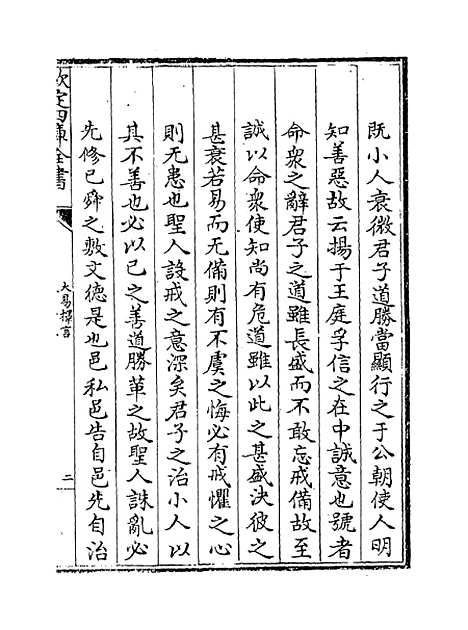 既小人衰微君子道勝當顯行之于公朝使人明
知善惡故云揚于王庭孚信之在中誠意也號者
命衆之辭君子之道雖長盛而不敢忘戒備故至
誠以命衆使知尚有危道雖以此之甚盛決彼之
甚衰若易而无備則有不虞之悔必有戒懼之心
則无患也聖人設戒之意深矣君子之治小人以
其不善也必以已之善道勝革之故聖人誅亂必
先修已舜之敷文德是也邑私邑告自邑先自治
欽定四庫全書
大易擇言
二